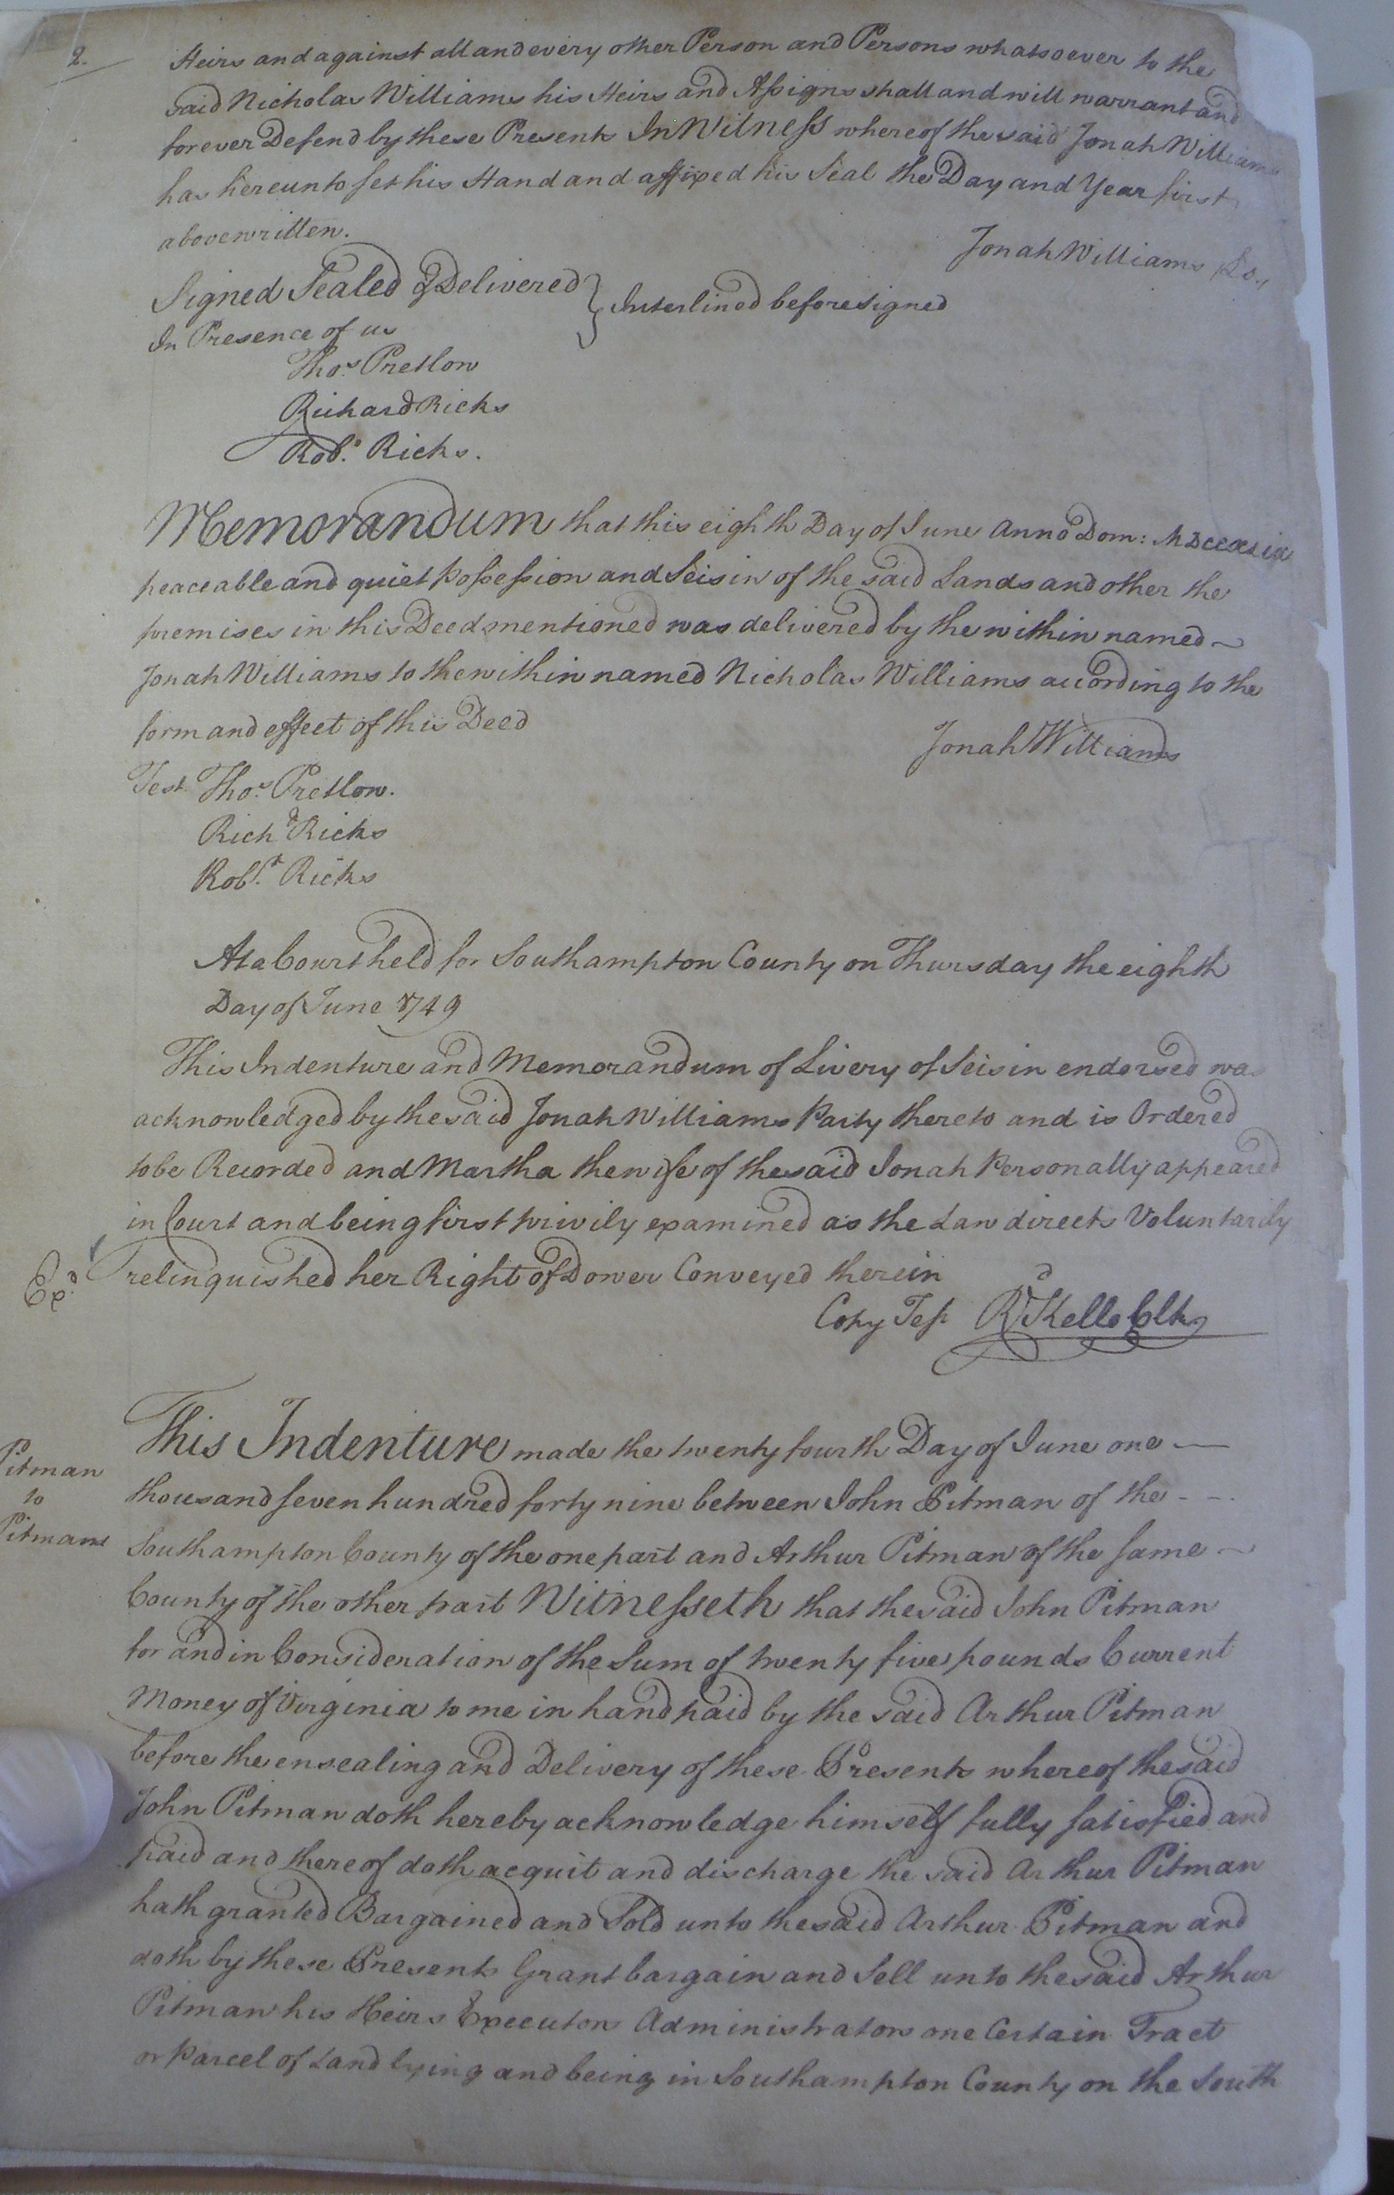 2.
Heirs and against all and every other Person and Persons whatsoever to the
said Nicholas Williams his Heirs and Assigns shall and will warrant and
forever Defend by these Presents In Witness whereof the said Jonah Williams
has hereunto set his Hand and affixed his Seal the Day and Year first
above written.
Jonah Williams
Signed Sealed & Delivered } Interlined before signed
In Presence of us
Thos. Pretlow
Richard Ricks
Robt. Ricks.
Memorandum that this eighth Day of June Anno Dom: MDCCXLIX
peaceable and quiet Possession and Seisin of the said Lands and other the
premises in this Deed mentioned was delivered by the within named
Jonah Williams to the within named Nicholas Williams according to the
form and effect of this Deed
Jonah Williams
Test Thos. Pretlow.
Richd Ricks
Robt. Ricks
At a Court held for Southampton County on Thursday the eighth
Day of June 1749
This Indenture and Memorandum of Livery of Seisin endorsed was
acknowledged by the said Jonah Williams Party thereto and is Ordered
to be Recorded and Martha the wife of the said Jonah Personally appeared
in Court and being first privily examined as the Law directs Voluntarily
Exd. relinquished her Right of Dower Conveyed therein
Copy Test Rd Kello Clk
Pitman
to
Pitman
This Indenture made the twenty fourth Day of June one
thousand seven hundred forty nine between John Pitman of the
Southampton County of the one part and Arthur Pitman of the same
County of the other part Witnesseth that the said John Pitman
for and in Consideration of the Sum of twenty five pounds Current
Money of Virginia to me in hand paid by the said Arthur Pitman
before the ensealing and Delivery of these Presents whereof the said
John Pitman doth hereby acknowledge himself fully satisfied and
paid and thereof doth acquit and discharge the said Arthur Pitman
hath granted Bargained and Sold unto the said Arthur Pitman and
doth by these Presents Grant bargain and Sell unto the said Arthur
Pitman his Heirs Executors Administrators one Certain Tract
or Parcel of Land lying and being in Southampton County on the South